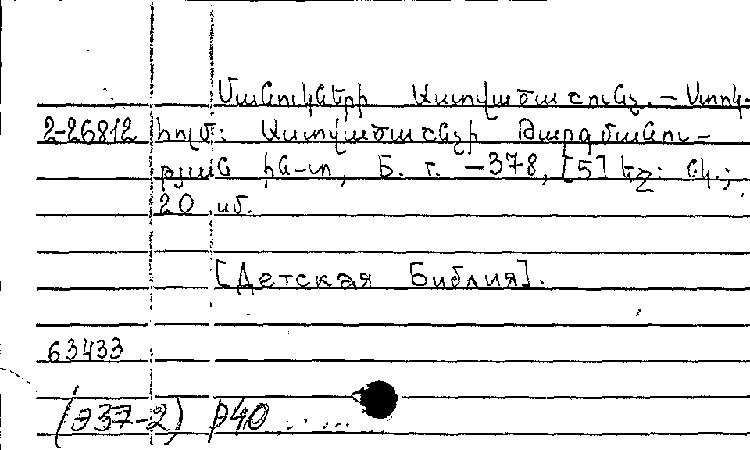 Մանուկների Աստվածաշունչ. – Ստոկ-
2-26812 հոլմ: Աստվածաշնչի Թարգմանու-
թյան ին-տ, Б. г. – 378, [5] էջ: նկ.;
20 սմ.
[Детская Библия].
63433
(Э37-2) Р40